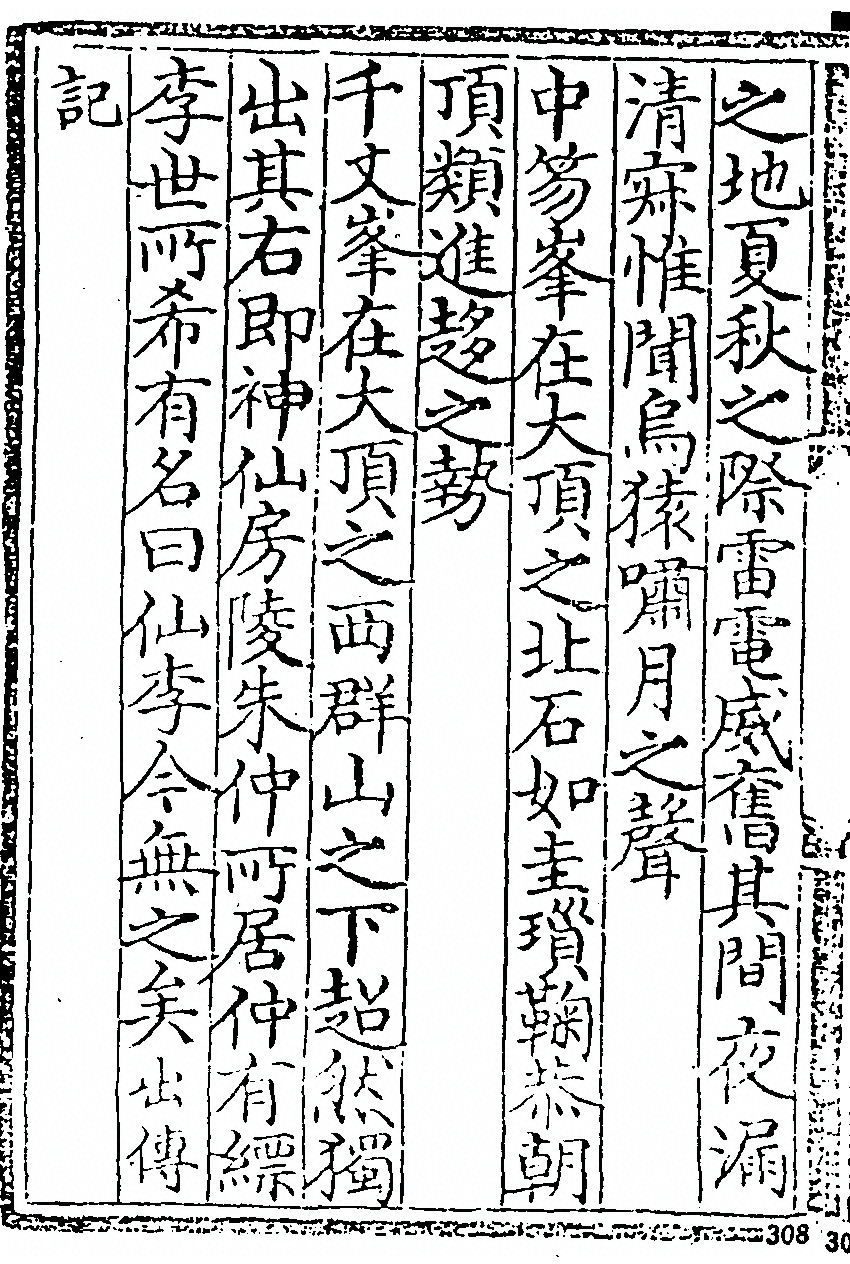 之地夏秋之際雷電威奮其間夜漏
清寂惟聞烏猿嘯月之聲
中笏峯在大頂之北石如圭瓚鞠恭朝
頂類進趍之勢
千丈峯在大頂之西群山之下超然獨
出其右即神仙房陵朱仲所居仲有縹
李世所希有名曰仙李今無之矣出傳
記
308
30